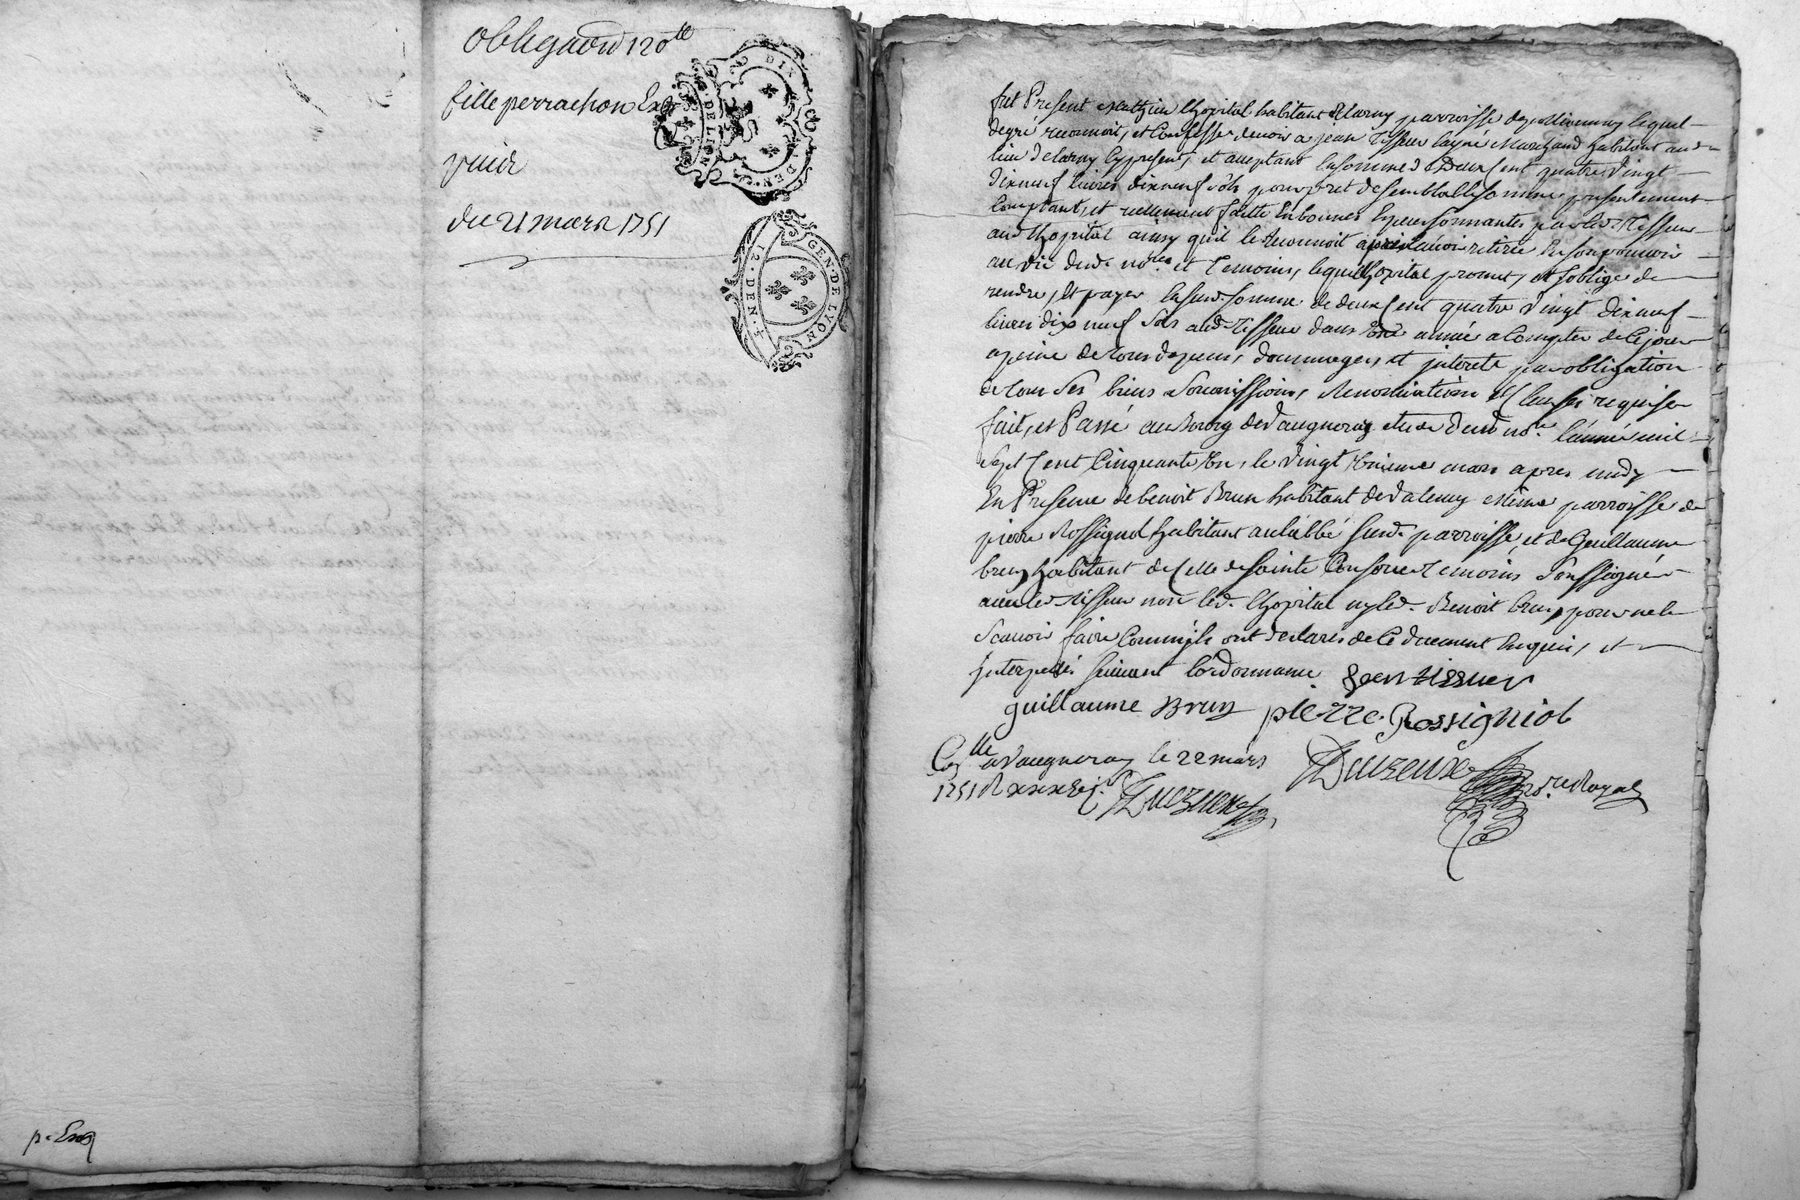 obligaõn 120ᵗᵗ
fille perrachon
puid
du 21 mars 1751
DIX DEN.
DE LION
GEN. DE LYON
12. DEN. T.
p.
fut Present mathieu lhopital habitant parroisse de pollionnay lequel
degré reconnoit, et Confesse devoir a jean Tisseur layné Marchand habitant aud.
lieu de larny Cy present, et aceptant la somme de Deux Cent quatre vingt
dixneuf livres dixneuf sols pour pret de semblable somme presentement
Comptant, et reellement faitte En bonnes Especes sonnantes par led. Tisseur
aud lhopital ainsy quil le reconnoit apres lavoir retirée En son pouvoir
au vû dud. noʳᵉ et Temoins, lequel lhopital promet, et soblige de
rendre, Et payer la sud. somme de deux Cent quatre Vingt dixneuf
livres dix neuf sols aud. Tisseur dans Une année a Compter de Ce jour
a peine de tous depens, dommages, et jnterets par obligation
de tous ses biens Soumissions, Renonciations Et Clauses requises
fait, et Passé au Bourg de Vaugneray etude dud noʳᵉ l'année mil
sept Cent Cinquante Un, le Vingt Unieme mars apres midy
En Presence de benoit Brun habitant de Valency même parroisse de
pierre Rossignol habitant au labbé sud. parroisse, et de Guillaume
brun habitant de Celle de Sainte Consorce Temoins soussignés
avec led. Tisseur non led. lhopital ny led. Benoit brun pour ne le
scavoir faire Comm'jls ont declarés de Ce duement Enquis, et
jnterpelés suivant lordonnance. Jean tisseur
guillaume Brun pierre Rossigniol
Conˡˡᵉ a Vaugneray le 22 mars
1751 R
Duzeux
Duzeux noʳᵉ Royal